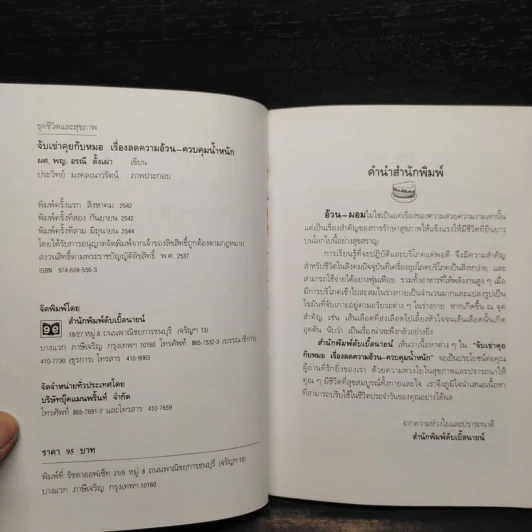 ชุดชีวิตและสุขภาพ
จับเข่าคุยกับหมอ เรื่องลดความอ้วน-ควบคุมน้ำหนัก
ผศ. พญ. อรณี ตั้งเผ่า เขียน
ประวิทย์ มงคลเนาวรัตน์ ภาพประกอบ
พิมพ์ครั้งแรก สิงหาคม 2542
พิมพ์ครั้งที่สอง กันยายน 2542
พิมพ์ครั้งที่สาม มิถุนายน 2544
โดยได้รับการอนุญาตจัดพิมพ์จากเจ้าของลิขสิทธิ์ถูกต้องตามกฎหมาย
สงวนสิทธิ์ตามพระราชบัญญัติลิขสิทธิ์ พ.ศ. 2537
ISBN 974-604-556-3
จัดพิมพ์โดย
สำนักพิมพ์ดับเบิ้ลนายน์
18/27 หมู่ 8 ถนนพาณิชยการธนบุรี (จรัญฯ 13)
บางแวก ภาษีเจริญ กรุงเทพฯ 10160 โทรศัพท์ 865-7632-3 (บรรณาธิการ)
410-7739 (ธุรการ) โทรสาร 410-9065
จัดจำหน่ายทั่วประเทศโดย
บริษัทบุ๊คแมนพริ้นท์ จำกัด
โทรศัพท์ 865-7691-2 และโทรสาร 410-7659
ราคา 95 บาท
พิมพ์ที่ วัชดาออฟเซ็ท 21/9 หมู่ 8 ถนนพาณิชยการธนบุรี (จรัญฯ 13)
บางแวก ภาษีเจริญ กรุงเทพฯ 10160
คำนำสำนักพิมพ์
อ้วน-ผอม ไม่ใช่เป็นแต่เรื่องของความสวยความงามเท่านั้น
แต่เป็นเรื่องสำคัญของการรักษาสุขภาพให้แข็งแรงให้มีชีวิตที่ยืนยาว
บนโลกใบนี้อย่างสุขสราญ
การเรียนรู้ที่จะปฏิบัติและบริโภคแต่พอดี จึงมีความสำคัญ
สำหรับชีวิตในสังคมปัจจุบันที่เครื่องอุปโภคบริโภคเป็นสิ่งหาง่าย และ
สามารถใช้จ่ายได้อย่างฟุ่มเฟือย รวมทั้งอาหารที่ให้พลังงานสูง ๆ เมื่อ
มีการบริโภคเข้าไปสะสมในร่างกายเป็นจำนวนมากและแปลงรูปเป็น
ไขมันที่จับเกาะอยู่ตามอวัยวะต่าง ๆ ในร่างกาย หากเกิดขึ้น ณ จุด
สำคัญ เช่น เส้นเลือดที่ส่งเลือดไปเลี้ยงหัวใจจนเส้นเลือดนั้นเกิด
อุดตัน นับว่า เป็นเรื่องน่าสะพึงกลัวอย่างยิ่ง
สำนักพิมพ์ดับเบิ้ลนายน์ เห็นว่าเนื้อหาต่าง ๆ ใน "จับเข่าคุย
กับหมอ เรื่องลดความอ้วน-ควบคุมน้ำหนัก" จะเป็นประโยชน์ต่อคุณ
ผู้อ่านที่รักยิ่งของเรา ด้วยความห่วงใยในสุขภาพและปรารถนาให้
คุณ ๆ มีชีวิตที่สุขสมบูรณ์ทั้งกายและใจ เราจึงภูมิใจนำเสนอเนื้อหา
ที่สามารถปรับใช้ในชีวิตประจำวันของคุณอย่างได้ผล
จากความห่วงใยและปรารถนาดี
สำนักพิมพ์ดับเบิ้ลนายน์